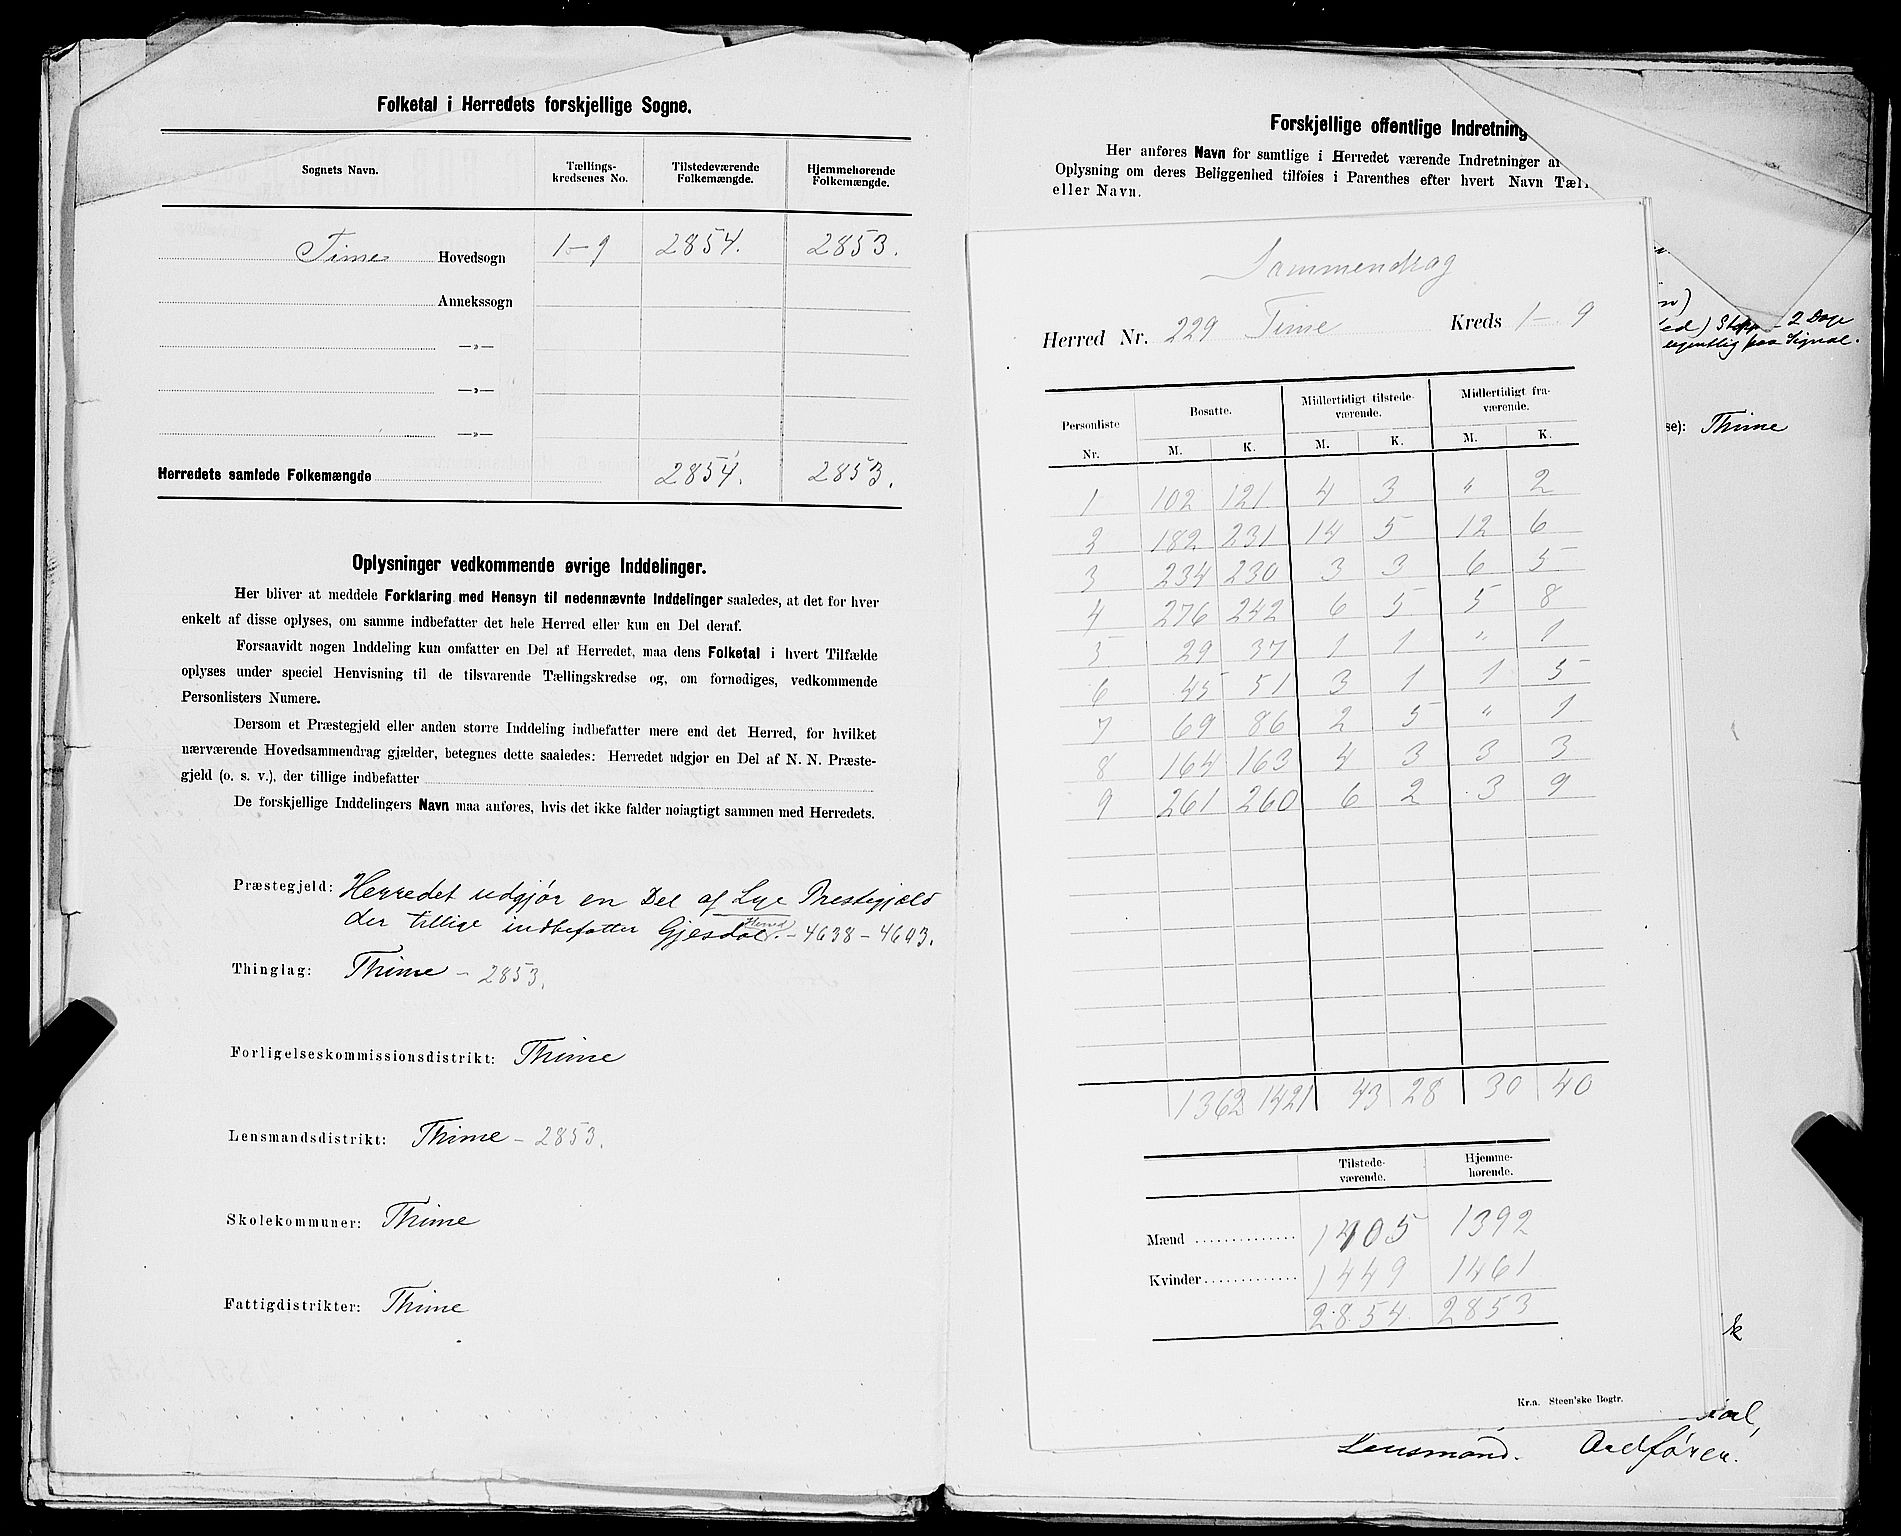 Folketal i Herredets forskjellige Sogne.
Sognets Navn. Tællings-kredsenes No. Tilstedeværende Folkemængde. Hjemmehørende Folkemængde.
Time Hovedsogn 1-9 2854. 2853.
Annekssogn
—„—
—„—
—„—
Herredets samlede Folkemængde 2854. 2853.
Oplysninger vedkommende øvrige Inddelinger.
Her bliver at meddele Forklaring med Hensyn til nedennævnte Inddelinger saaledes, at det for hver
enkelt af disse oplyses, om samme indbefatter det hele Herred eller kun en Del deraf.
Forsaavidt nogen Inddeling kun omfatter en Del af Herredet, maa dens Folketal i hvert Tilfælde
oplyses under speciel Henvisning til de tilsvarende Tællingskredse og, om fornødiges, vedkommende
Personlisters Numere.
Dersom et Præstegjeld eller anden større Inddeling indbefatter mere end det Herred, for hvilket
nærværende Hovedsammendrag gjælder, betegnes dette saaledes: Herredet udgjør en Del af N. N. Præste-
gjeld (o. s. v.), der tillige indbefatter
De forskjellige Inddelingers Navn maa anføres, hvis det ikke falder nøiagtigt sammen med Herredets.
Præstegjeld: Herredet udgjør en Del af Lye Prestegjæld
der tillige indbefatter Gjesdal Herred. - 4638 - 4693.
Thinglag: Thime - 2853.
Forligelseskommissionsdistrikt: Thime
Lensmandsdistrikt: Thime - 2853.
Skolekommuner: Thime
Fattigdistrikter: Thime
Forskjellige offentlige Indretning
Her anføres Navn for samtlige i Herredet værende Indretninger a
Oplysning om deres Beliggenhed tilføies i Parenthes efter hvert Navn Tæl
eller Navn.
Sammendrag
Herred Nr. 229 Time Kreds 1-9
Personliste Nr. Bosatte. Midlertidigt tilstede-værende. Midlertidigt fra-værende.
M. K. M. K. M. K.
1 102 121 4 3 " 2
2 182 231 14 5 12 6
3 234 230 3 3 6 5
4 276 242 6 5 5 8
5 29 37 1 1 " 1
6 45 51 3 1 1 5
7 69 86 2 5 " 1
8 164 163 4 3 3 3
9 261 260 6 2 3 9
1362 1421 43 28 30 40
Tilstede-værende. Hjemme-hørende.
Mænd 1405 1392
Kvinder 1449 1461
2854. 2853
Kr.a. Steen'ske Bogtr.
se): Thime
Lensmand. Ordfører.